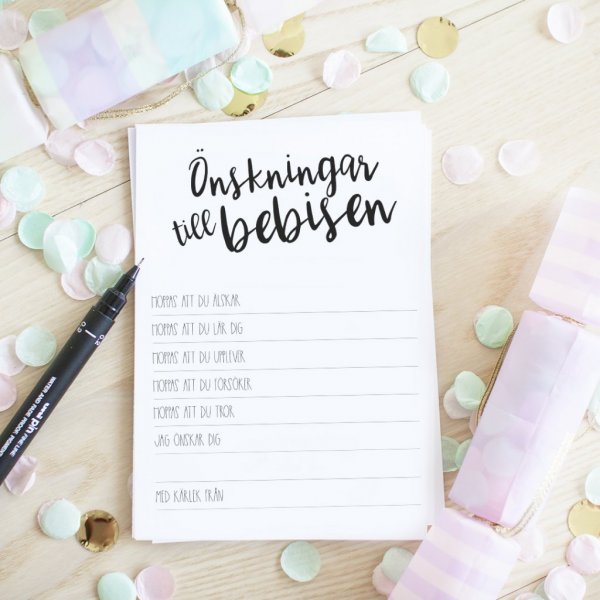 Önskningar
till bebisen
HOPPAS ATT DU ÄLSKAR
HOPPAS ATT DU LÄR DIG
HOPPAS ATT DU UPPLEVER
HOPPAS ATT DU FÖRSÖKER
HOPPAS ATT DU TROR
JAG ÖNSKAR DIG
MED KÄRLEK FRÅN
uni pin FINE LINE
WATER AND FADE PROOF PIGMENT
0.2